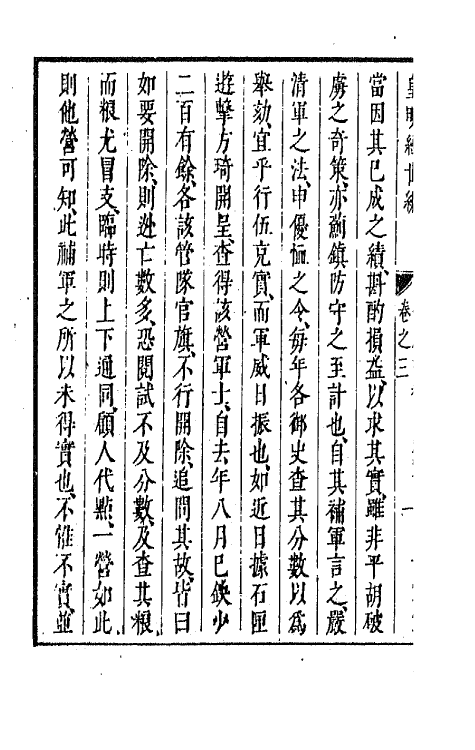 皇明經世編
卷之三
當因其已成之績斟酌損益以求其實雖非平胡破
虜之奇策亦薊鎮防守之至計也自其補軍言之嚴
清軍之法申優恤之令每年各御史查其分數以為
舉劾宜乎行伍克實而軍威日振也如近日據石匣
遊擊方琦開呈查得該營軍士自去年八月已缺少
二百有餘各該管隊官旗不行開除追問其故皆曰
如要開除則逃亡數多恐閱試不及分數及查其粮
而粮尤冒支臨時則上下通同顧人代點一營如此
則他營可知此補軍之所以未得實也不惟不實並